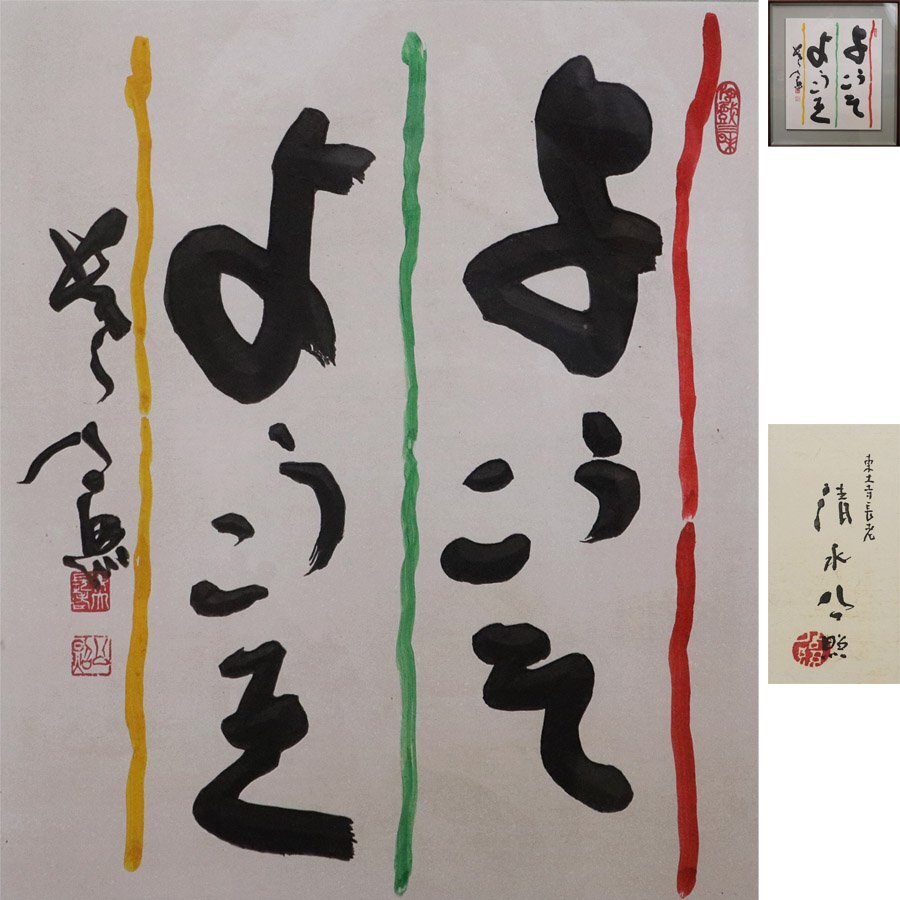 ようこそ
ようこそ
東大寺長老
清水公照